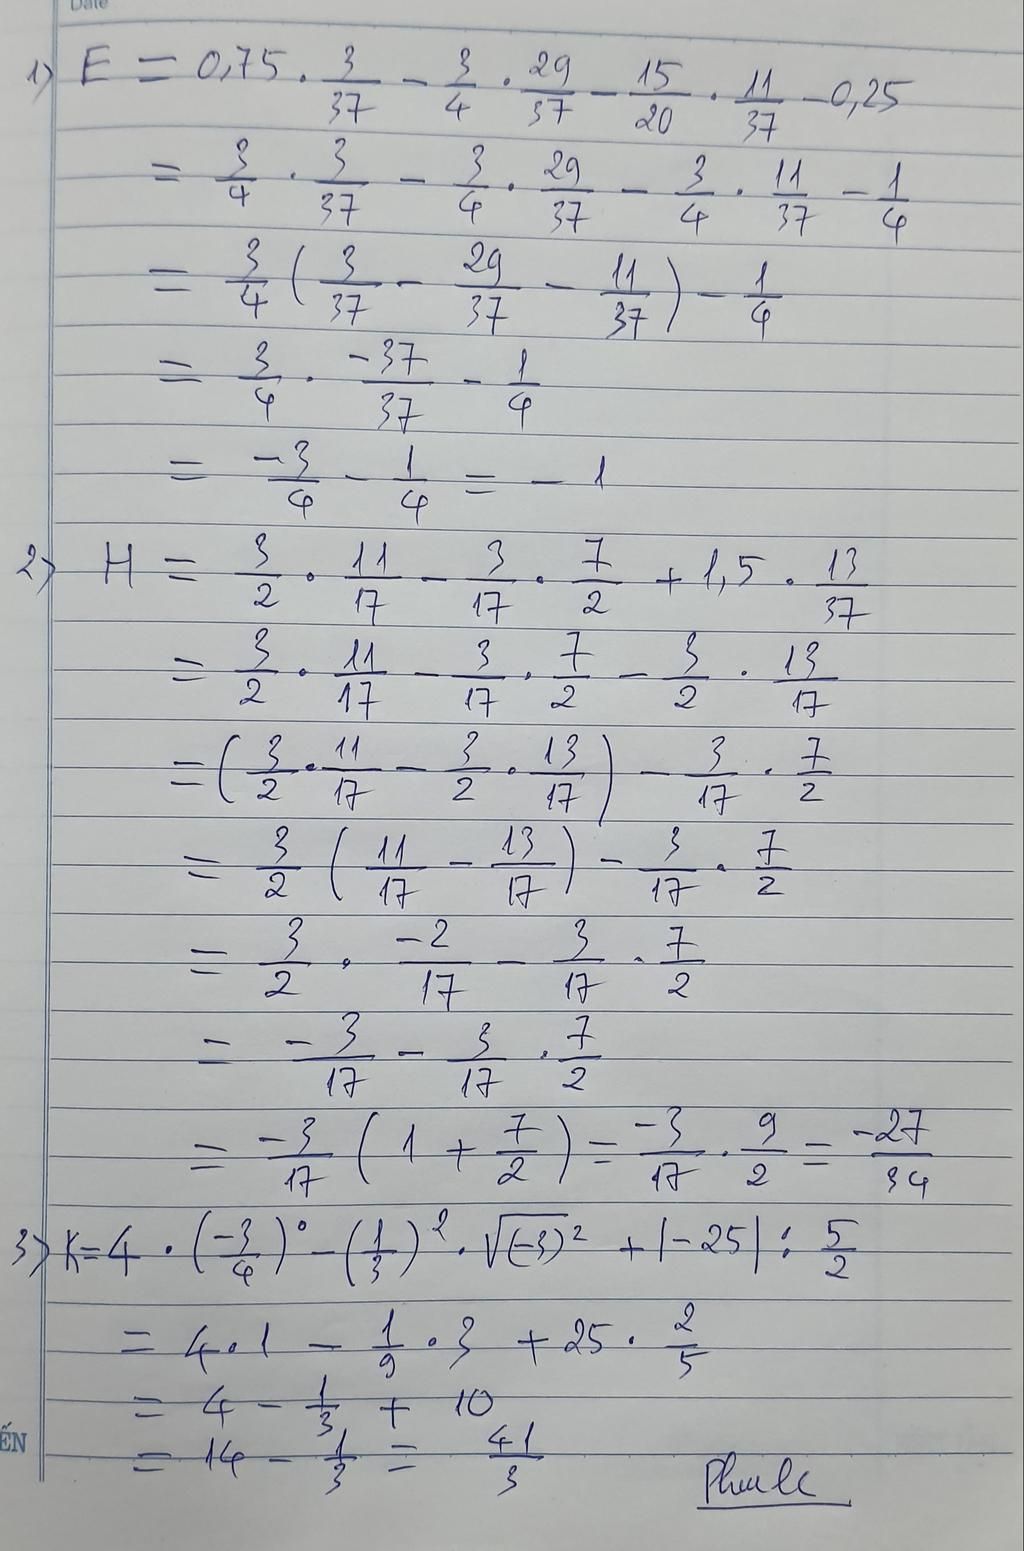 Date
1) E = 0,75 · 3/37 - 3/4 · 29/37 - 15/20 · 11/37 - 0,25
= 3/4 · 3/37 - 3/4 · 29/37 - 3/4 · 11/37 - 1/4
= 3/4 ( 3/37 - 29/37 - 11/37 ) - 1/4
= 3/4 · -37/37 - 1/4
= -3/4 - 1/4 = - 1
2) H = 3/2 · 11/17 - 3/17 · 7/2 + 1,5 · 13/37
= 3/2 · 11/17 - 3/17 · 7/2 - 3/2 · 13/17
= ( 3/2 · 11/17 - 3/2 · 13/17 ) - 3/17 · 7/2
= 3/2 ( 11/17 - 13/17 ) - 3/17 · 7/2
= 3/2 · -2/17 - 3/17 · 7/2
= -3/17 - 3/17 · 7/2
= -3/17 ( 1 + 7/2 ) = -3/17 · 9/2 = -27/34
3) K = 4 · (-3/4)⁰ - (1/3)² · √(-3)² + |-25| : 5/2
= 4 · 1 - 1/9 · 3 + 25 · 2/5
= 4 - 1/3 + 10
ẾN
= 14 - 1/3 = 41/3